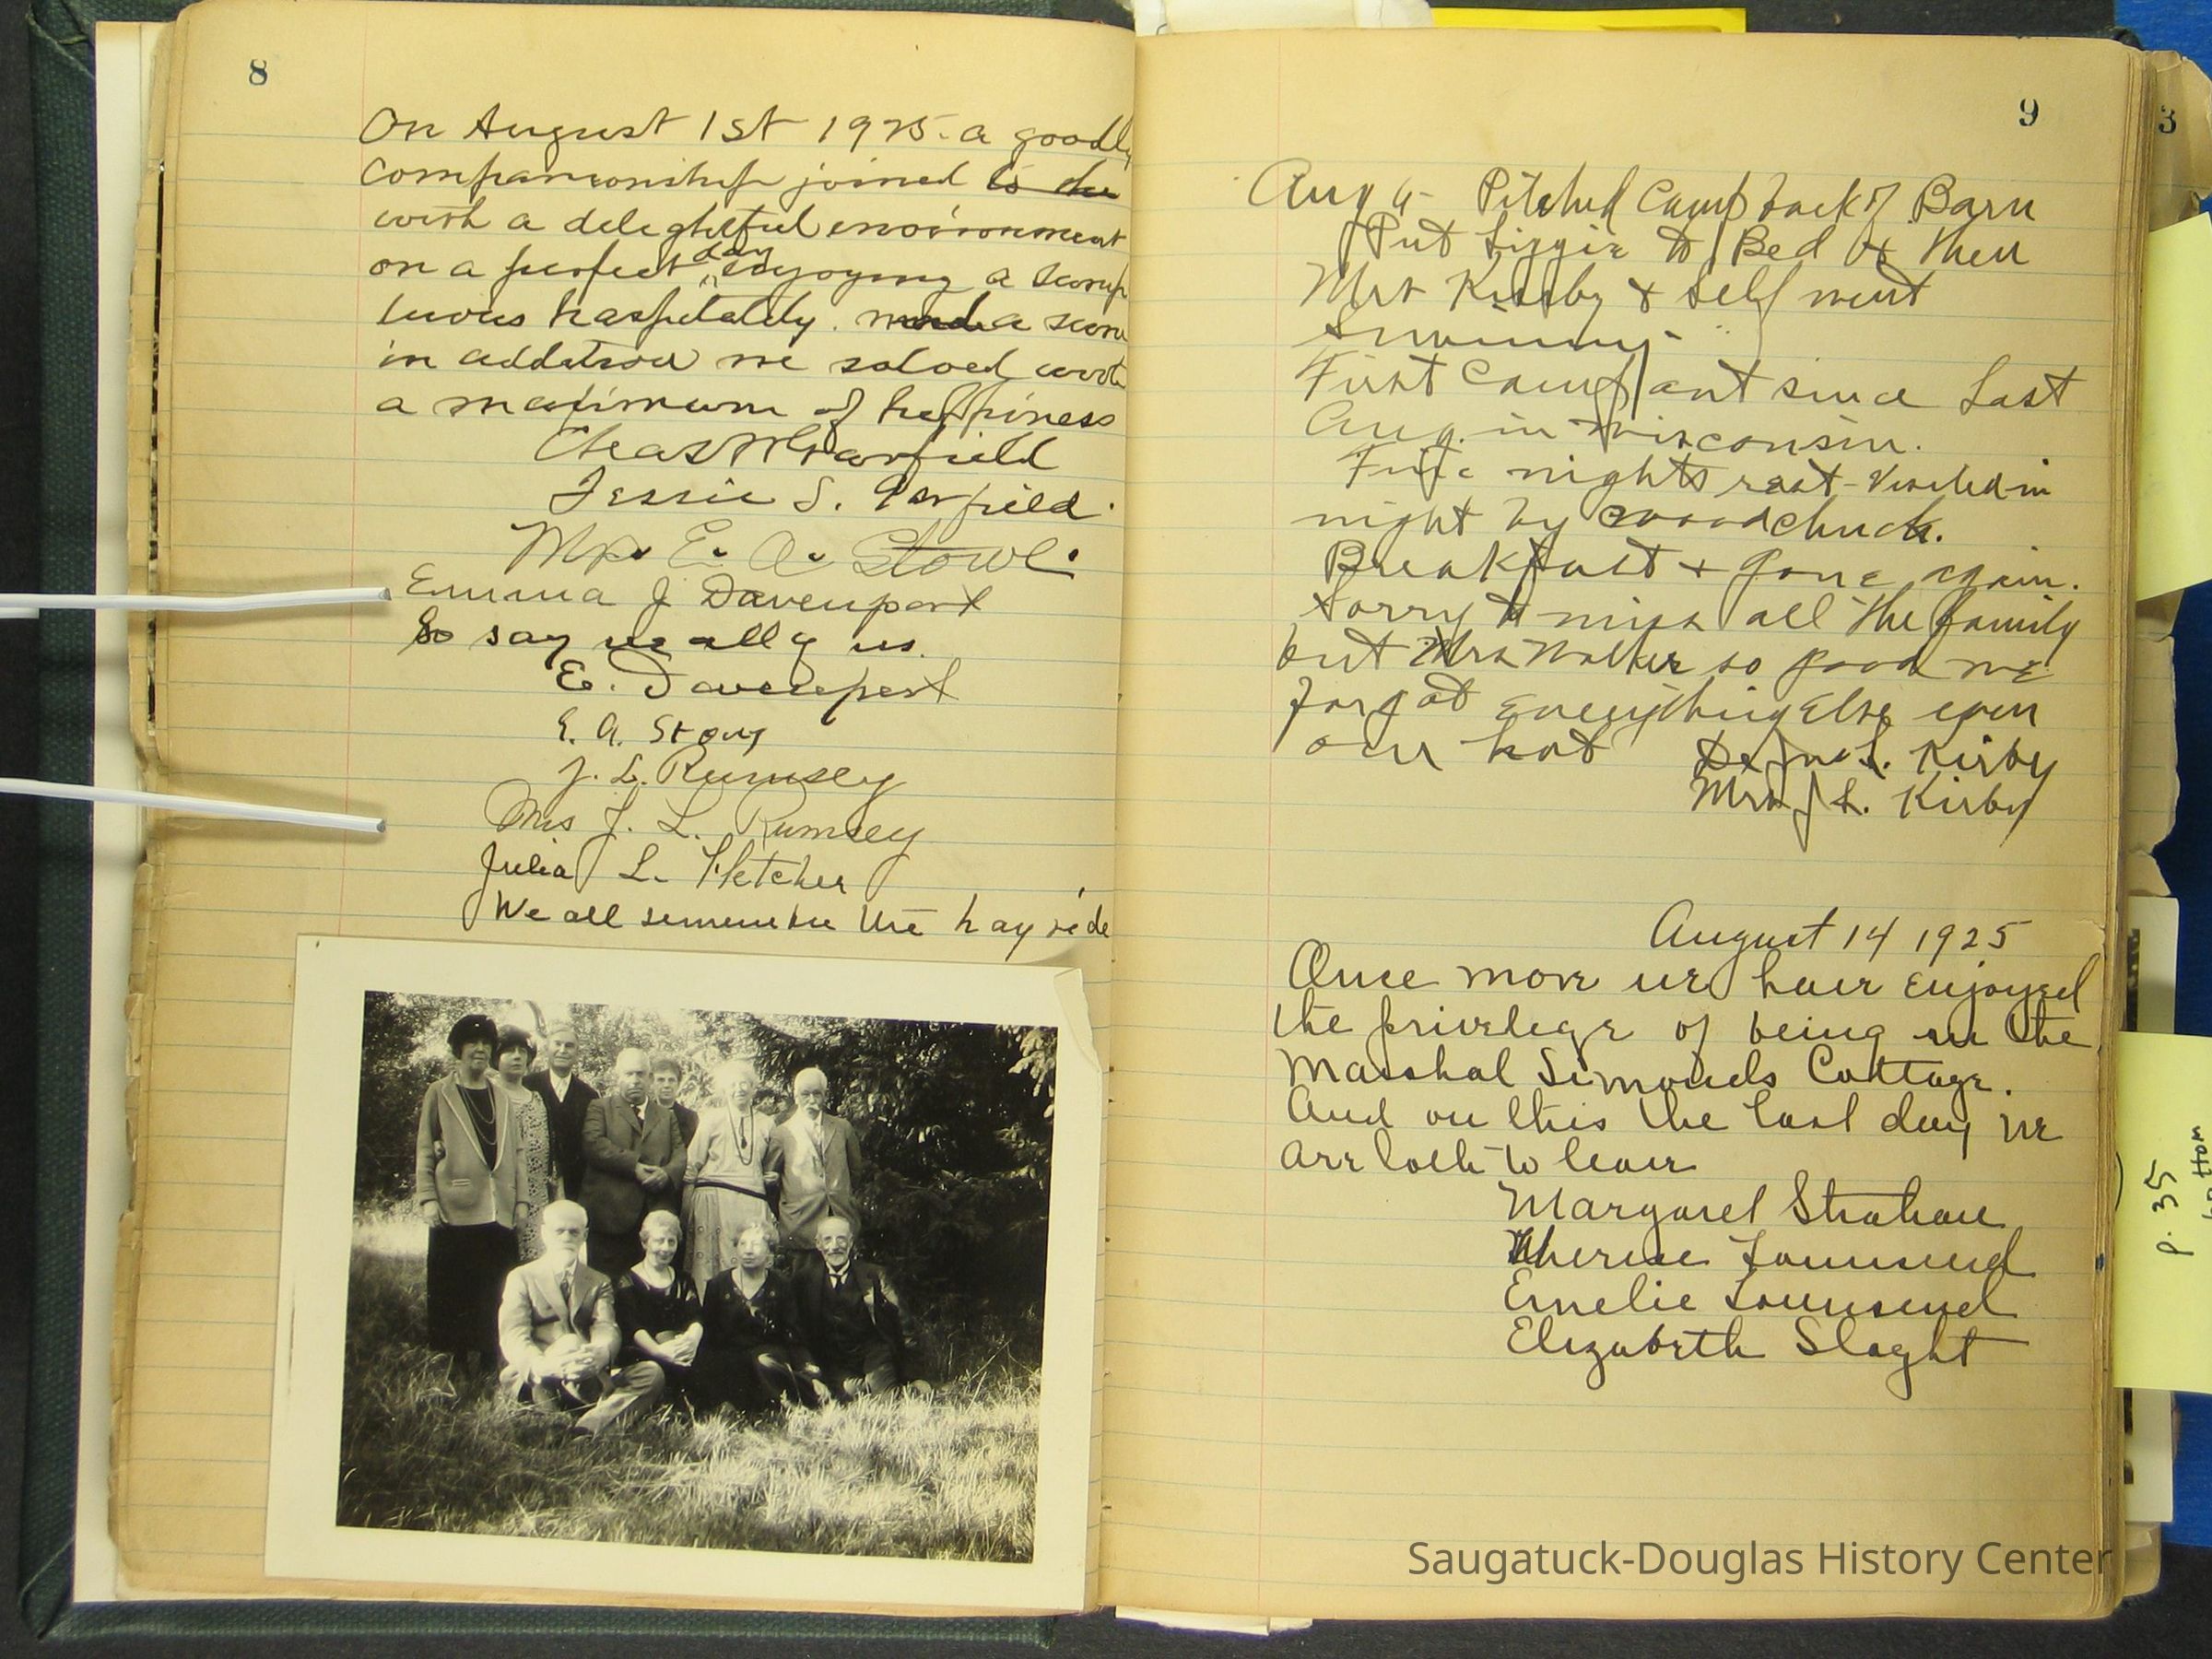 8
On August 1st 1925. a goodly
companionship joined to the
with a delightful environment
on a perfect day enjoying a sump
tuous haspitality. made a score
in addition we solved with
a maximum of happiness
Chas W Garfield
Jessie S. Garfield.
Mrs E. A. Stowe.
Emma J Davenport
So say we all of us.
E. Davenport
E. A. Stowe
J. L. Rumsey
Mrs J. L. Rumsey
Julia L. Fletcher
We all remember the hay ride
9
3
Aug 6- Pitched Camp back of Barn
Put Lizzie to Bed & then
Mrs Kirby & Self went
Swimming-
First Camp ant since Last
Aug. in Wisconsin.
Fine nights rest - Visited in
night by woodchuck.
Breakfast + gone again.
Sorry to miss all the family
but Mrs Walker so good we
forgot everything Else even
our hat
L. Kirby
Mrs J L. Kirby
August 14 1925
Once more we have enjoyed
the privelege of being in the
Marshal Simonds Cottage.
And on this the last day we
are loth to leave
Margaret Strahan
Therese Townsend
Emelie Townsend
Elizabeth Slaght
p. 35
Saugatuck-Douglas History Center